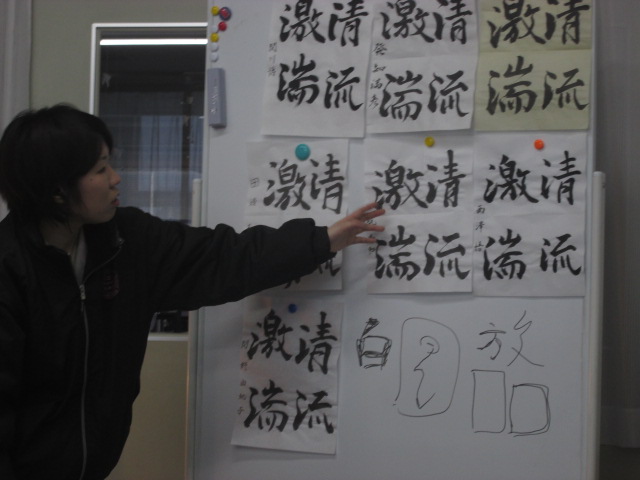 清流
激湍
清流
激湍
清流
激湍
清流
激湍
清流
激湍
清流
激
清流
激湍
放
白